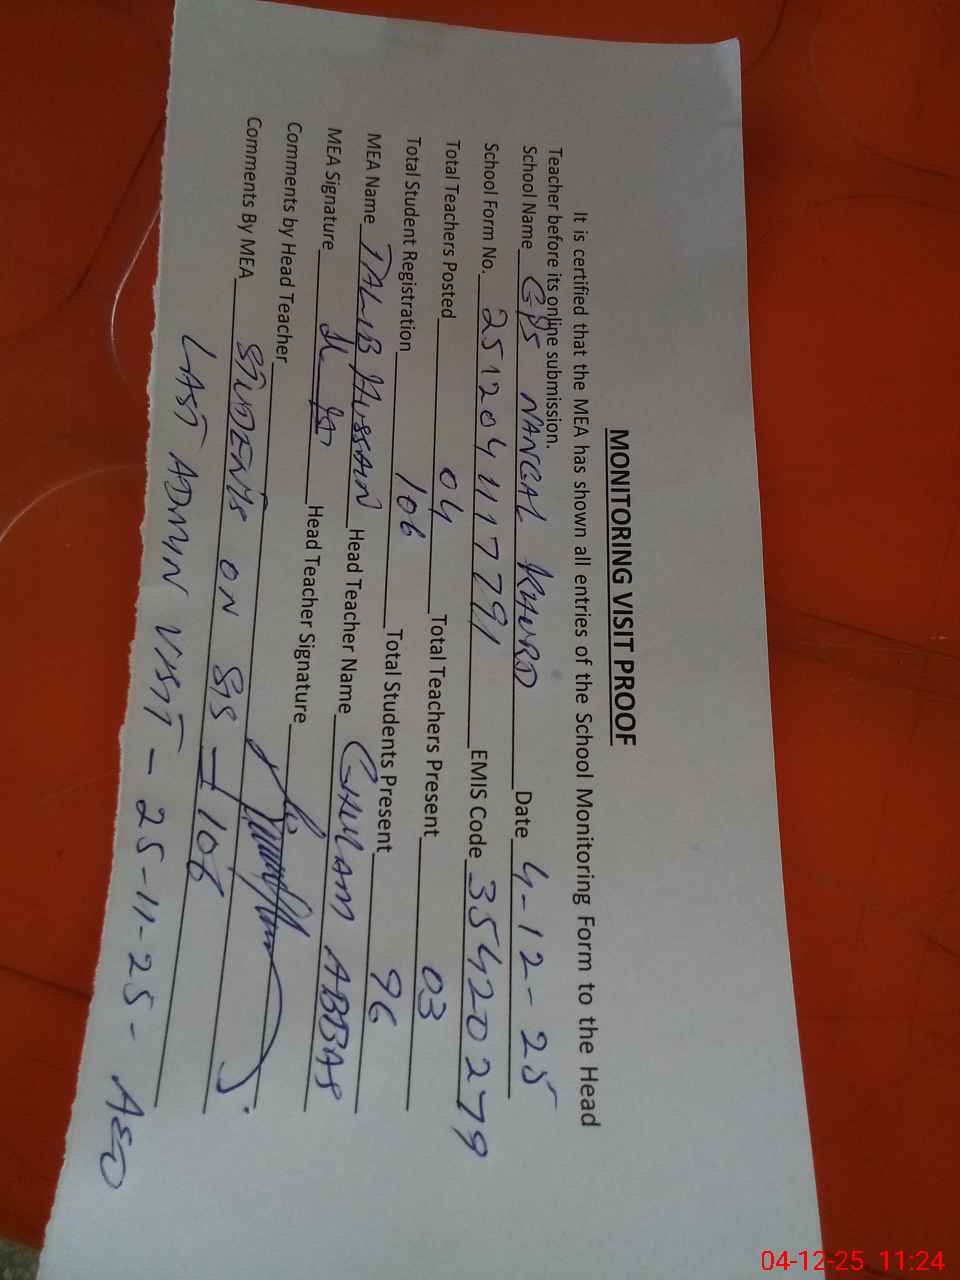 MONITORING VISIT PROOF
It is certified that the MEA has shown all entries of the School Monitoring Form to the Head
Teacher before its online submission.
School Name GPS NANGAL KHURD Date 4-12-25
School Form No. 251204117791 EMIS Code 35420279
Total Teachers Posted 04 Total Teachers Present 03
Total Student Registration 106 Total Students Present 96
MEA Name TALIB HUSSAIN Head Teacher Name GHULAM ABBAS
MEA Signature Head Teacher Signature
Comments by Head Teacher
Comments By MEA STUDENTS ON SIS - 106
LAST ADMIN VISIT - 25-11-25 - AEO
04-12-25 11:24